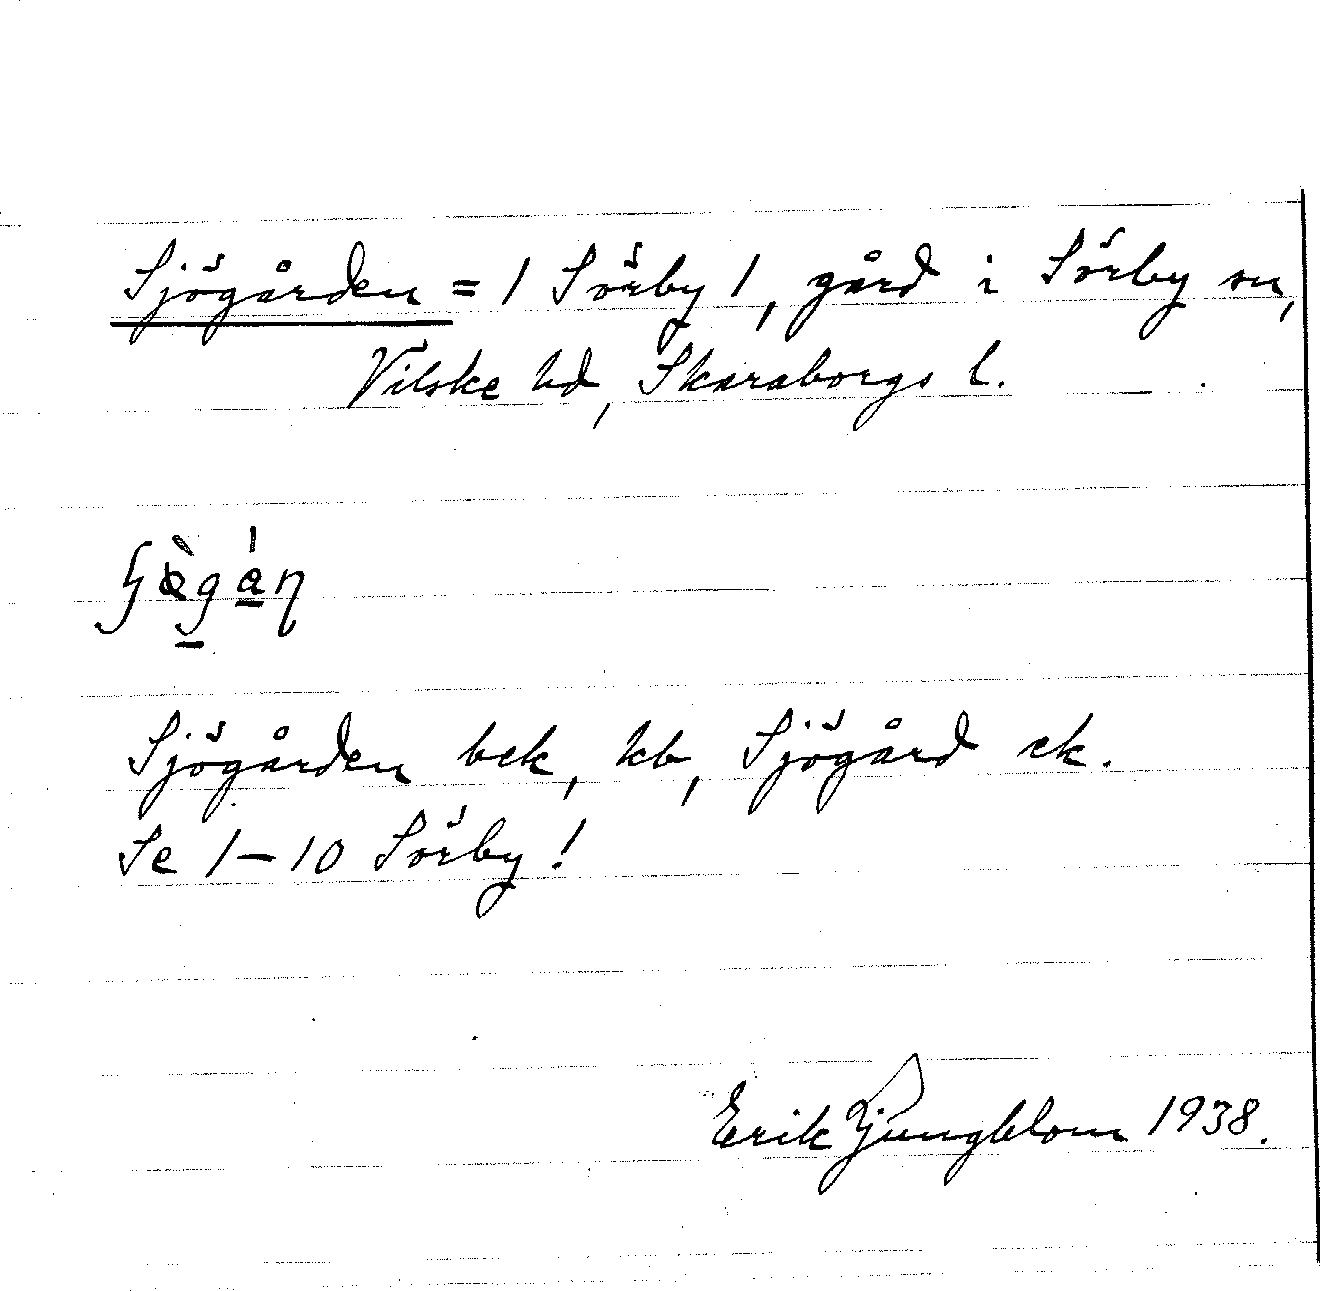 Sjögården = 1 Sörby 1, gård i Sörby sn,
Vilske hd, Skaraborgs l.
Sjögården bek, kb, Sjögård ek.
Se 1–10 Sörby!
Erik Ljungblom 1938.